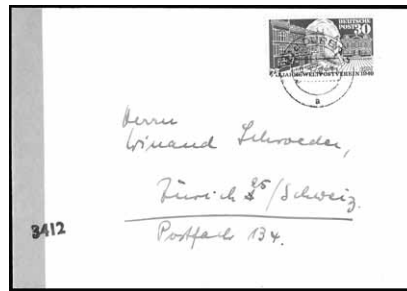 DEUTSCHE
POST 30
JAHRE WELTPOSTVEREIN 1949
a
Herrn
Winand Schroeder,
Zürich 25/Schweiz.
3412
Postfach 134.